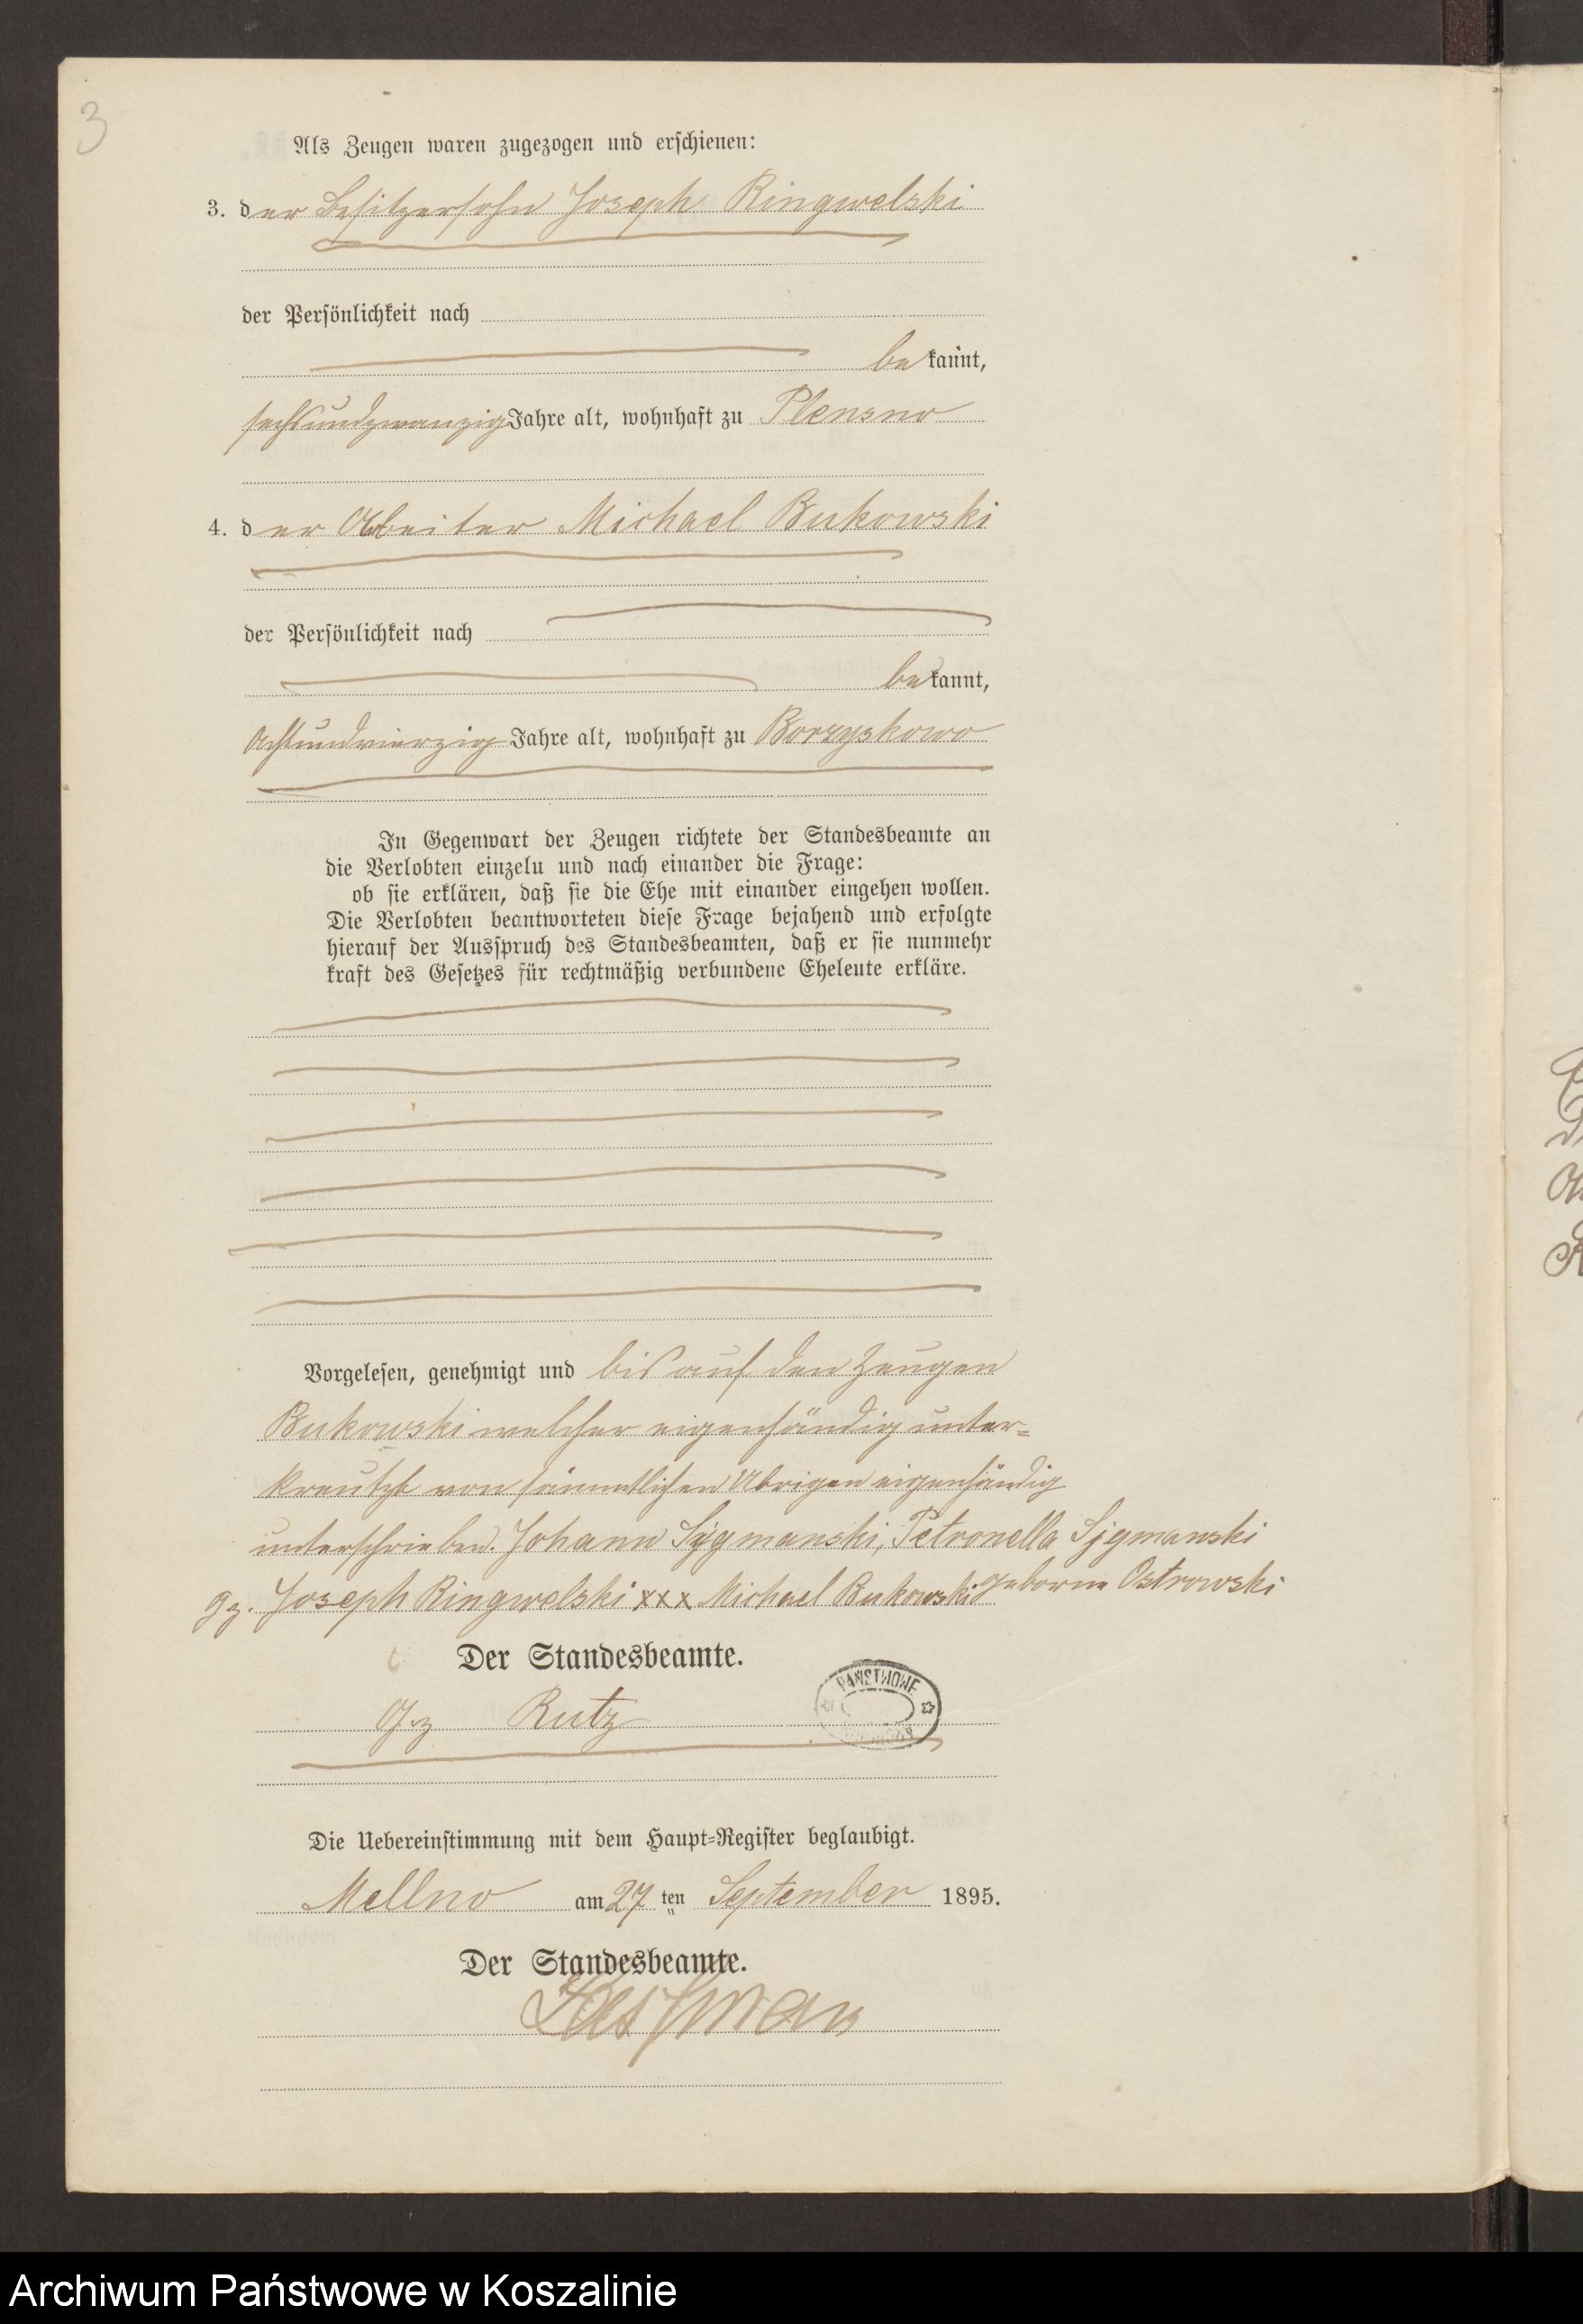 3
Als Zeugen waren zugezogen und erschienen:
3. der Besitzersohn Joseph Ringwelski
der Persönlichkeit nach
bekannt,
sechsundzwanzig Jahre alt, wohnhaft zu Plensno
4. der Arbeiter Michael Bukowski
der Persönlichkeit nach
bekannt,
achtundvierzig Jahre alt, wohnhaft zu Borzyskowo
In Gegenwart der Zeugen richtete der Standesbeamte an
die Verlobten einzeln und nach einander die Frage:
ob sie erklären, daß sie die Ehe mit einander eingehen wollen.
Die Verlobten beantworteten diese Frage bejahend und erfolgte
hierauf der Ausspruch des Standesbeamten, daß er sie nunmehr
kraft des Gesetzes für rechtmäßig verbundene Eheleute erkläre.
Vorgelesen, genehmigt und bis auf den Zeugen
Bukowski welcher eigenhändig unter=
kreutzt von sämmtlichen Übrigen eigenhändig
unterschrieben. Johann Sygmanski, Petronella Sygmanski
geborne Ostrowski
gz. Joseph Ringwelski xxx Michael Bukowski
Der Standesbeamte.
gz Rutz
PAŃSTWOWE
Die Uebereinstimmung mit dem Haupt=Register beglaubigt.
Mellno am 27 ten September 1895.
Der Standesbeamte.
Archiwum Państwowe w Koszalinie